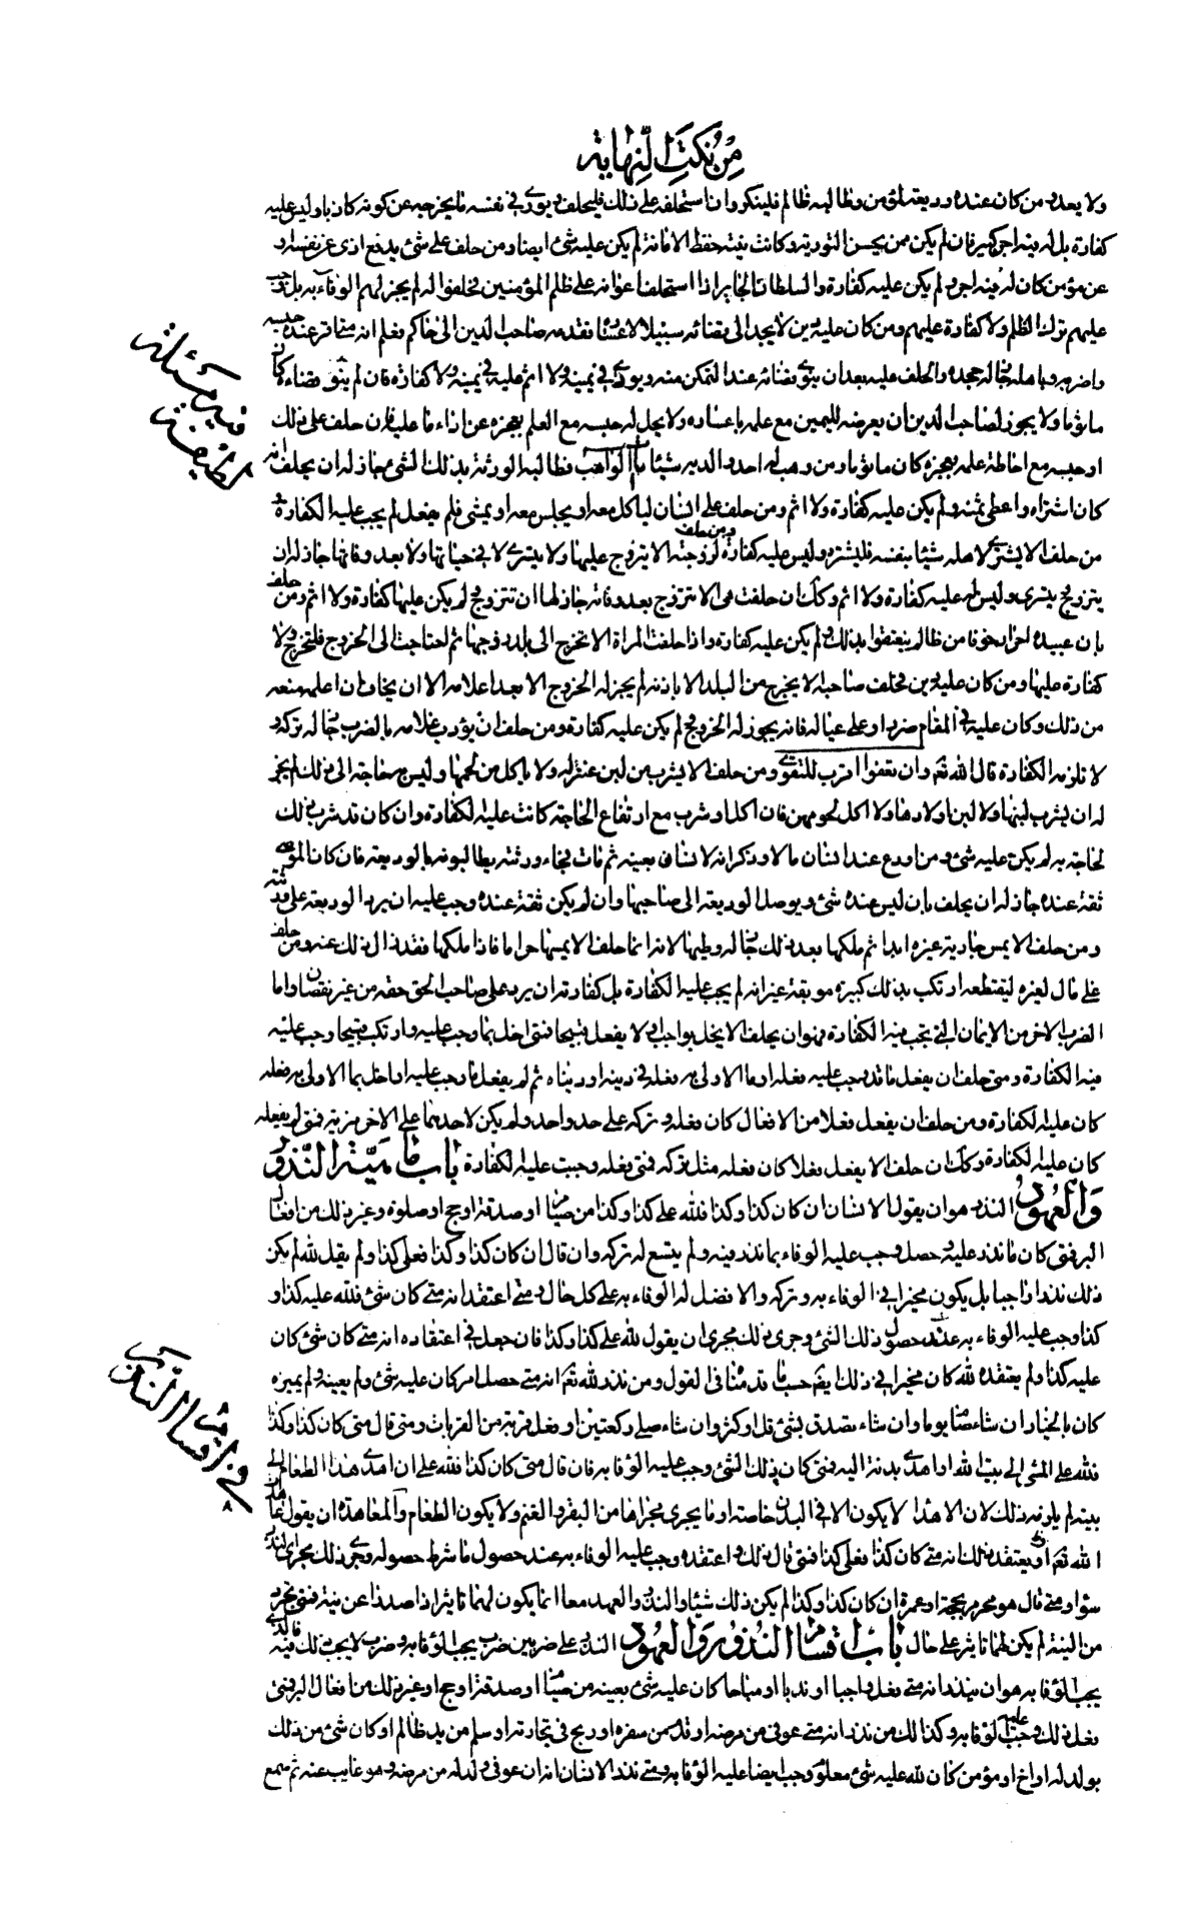 مِنْ نُكَتِ النِّهَايَة
ولا يعد ومن كان عنده وديعة لمؤمن وطالبه ظالم فلينكر وان استحلفه على ذلك فليحلف ويورّى فى نفسه ما يخرجه عن كونه كاذبا وليس عليه
كفارة بل له فيه اجر كبير فان لم يكن ممن يحسن التورية وكانت نيته حفظ الامانة لم يكن عليه شئ ايضا ومن حلف على شئ يدفع اذى عن نفسه او
عن مؤمن كان له فيه اجر ولم يكن عليه كفارة والسلطان الجاير اذا استحلف اعوانه على ظلم المؤمنين فحلفوا له لم يجز لهم الوفاء به بل يجب
عليهم ترك الظلم ولا كفارة عليهم ومن كان عليه دين لا يجد الى قضائه سبيلا لاعساره فقدمه صاحب الدين الى حاكم يعلم انه متى اقر عنده حبسه
واضر به وباهله جاز له جحده والحلف عليه بعد ان ينوى قضائه عند التمكن منه ويورى فى يمينه ولا اثم عليه فى يمينه ولا كفارة فان لم ينو قضاءه كان
ماثوما ولا يجوز لصاحب الدين ان يعرضه لليمين مع علمه باعساره ولا يحل له حبسه مع العلم بعجزه عن اداء ما عليه فان حلف على ذلك
او حبسه مع احاطة علمه بعجزه كان ماثوما ومن وهب له احد والديه شيئا ثم مات الواهب فطالبه الورثة بذلك الشئ جاز له ان يحلف انه
كان اشتراه واعطى ثمنه ولم يكن عليه كفارة ولا اثم ومن حلف على انسان لياكل معه او يجلس معه او يمشى فلم يفعل لم يجب عليه الكفارة و
من حلف الا يشترى لاهله شيئا بنفسه فليشتره وليس عليه كفارة ومن حلف لزوجته الا يتزوج عليها ولا يتسرى لا فى حياتها ولا بعد وفاتها جاز له ان
يتزوج ويتسرى وليس له عليه كفارة ولا اثم وكذا ان حلفت هى الا تتزوج بعد وفاته جاز لها ان تتزوج ولم يكن عليها كفارة ولا اثم ومن حلف
بان عبيده احرار خوفا من ظالم لم ينعتقوا بذلك ولم يكن عليه كفارة واذا حلفت المراة الا تخرج الى بلد زوجها ثم احتاجت الى الخروج فلتخرج ولا
كفارة عليها ومن كان عليه دين فحلف صاحبه الا يخرج من البلد الا باذنه لم يجز له الخروج الا بعد اعلامه الا ان يخاف ان اعلمه منعه
من ذلك وكان عليه فى المقام ضرر او على عياله فانه يجوز له الخروج ولم يكن عليه كفارة ومن حلف ان يؤدب غلامه بالضرب جاز له تركه و
لا تلزمه الكفارة قال الله تعم وان تعفوا اقرب للتقوى ومن حلف الا يشرب من لبن عنز له ولا ياكل من لحمها وليس به حاجة الى ذلك لم يجز
له ان يشرب لبنها ولا لبن اولادها ولا اكل لحومهن فان اكل او شرب مع ارتفاع الحاجة كانت عليه الكفارة وان كان قد شرب ذلك
لحاجة به لم يكن عليه شئ ومن اودع عند انسان مالا وذكر انه لانسان بعينه ثم مات فجاء ورثته يطالبونه بالوديعة فان كان الموصى
ثقة عنده جاز له ان يحلف بان ليس عنده شئ ويوصل الوديعة الى صاحبها وان لم يكن ثقة عنده وجب عليه ان يرد الوديعة على ورثته
ومن حلف الا يمس جارية غيره ابدا ثم ملكها بعد ذلك جاز له وطيها لانه انما حلف الا يمسها حراما فاذا ملكها فقد زال ذلك عنه ومن حلف
على مال لغيره ليقتطعه ارتكب بذلك كبيرة موبقة غير انه لم يجب عليه الكفارة بل كفارته ان يرد على صاحب الحق حقه من غير نقصان واما
الضرب الاخر من الايمان التى يجب فيه الكفارة فهو ان يحلف الا يخل بواجب او لا يفعل قبيحا فمتى اخل بما وجب عليه وارتكب قبيحا وجب عليه
فيه الكفارة ومتى حلف ان يفعل ما قد وجب عليه فعله او ما الاولى به فعله فى دينه او دنياه ثم لم يفعل ما وجب عليه او اخل بما الاولى به فعله
كان عليه الكفارة ومن حلف ان يفعل فعلا من الافعال كان فعله وتركه على حد واحد ولم يكن لاحدهما على الاخر مزية فمتى لم يفعله
كان عليه الكفارة وكذا ان حلف الا يفعل فعلا كان فعله مثل تركه فمتى فعله وجبت عليه الكفارة باب ماهية النذور
وَالعُهُودِ النذر هو ان يقول الانسان ان كان كذا وكذا فلله على كذا وكذا من صيام او صدقة او حج او صلوة وغير ذلك من افعال
البر فمتى كان ما نذر عليه وحصل وجب عليه الوفاء بما نذر فيه ولم يسع له تركه وان قال ان كان كذا وكذا فعلى كذا ولم يقل لله لم يكن
ذلك نذرا واجبا بل يكون مخيرا فى الوفاء به وتركه والافضل له الوفاء به على كل حال ومتى اعتقد انه متى كان شئ فلله عليه كذا و
كذا وجب عليه الوفاء به عند حصول ذلك الشئ وجرى ذلك مجرى ان يقول لله على كذا وكذا فان جعل فى اعتقاده انه متى كان شئ كان
عليه كذا ولم يعتقده لله كان مخيرا فى ذلك ايضا حسب ما قدمناه فى القول ومن نذر لله تعم انه متى حصل امر كان عليه شئ ولم يعينه ولم يميزه
كان بالخيار ان شاء صام يوما وان شاء تصدق بشئ قل او كثر وان شاء صلى ركعتين او فعل قربة من القربات ومتى قال متى كان كذا وكذا
فلله على المشى الى بيت الله او اهدى بدنة اليه فمتى كان ذلك الشئ وجب عليه الوفا به فان قال متى كان كذا فلله على ان اهدى هذا الطعام الى
بيته لم يلزمه ذلك لان الاهداء لا يكون الا فى البدن خاصة او ما يجرى مجراها من البقر والغنم ولا يكون الطعام والمعاهدة ان يقول عاهدت
الله تعم او يعتقد ذلك انه متى كان كذا فعلى كذا فمتى قال ذلك او اعتقده وجب عليه الوفاء به عند حصول ما شرط حصوله وجرى ذلك مجرى النذر
سواء ومتى قال هو محرم بحجة او عمرة ان كان كذا وكذا لم يكن ذلك شيئا والنذر والعهد معا انما يكون لهما تاثير اذا صدرا عن نية فمتى تجرد
من النية لم يكن لهما تاثير على حال باب اقسام النذور والعهود النذر على ضربين ضرب يجب الوفا به وضرب لا يجب ذلك فيه فالذى
يجب الوفا به هو ان ينذر انه متى فعل واجبا او ندبا او مباحا كان عليه شئ بعينه من صيام او صدقة او حج او غير ذلك من افعال البر فمتى
فعل ذلك وجب عليه الوفا به وكذلك من نذر انه متى عوفى من مرضه او قدم من سفره او ربح فى تجارته او سلم من يد ظالم او كان شئ من ذلك
بولد له او اخ او مؤمن كان لله عليه شئ معلوم وجب ايضا عليه الوفا به ومتى نذر الانسان انه ان عوفى ولد له من مرضه وهو غايب عنه ثم سمع
فيه مسئلة
لطيفة
فى اقسام النذر